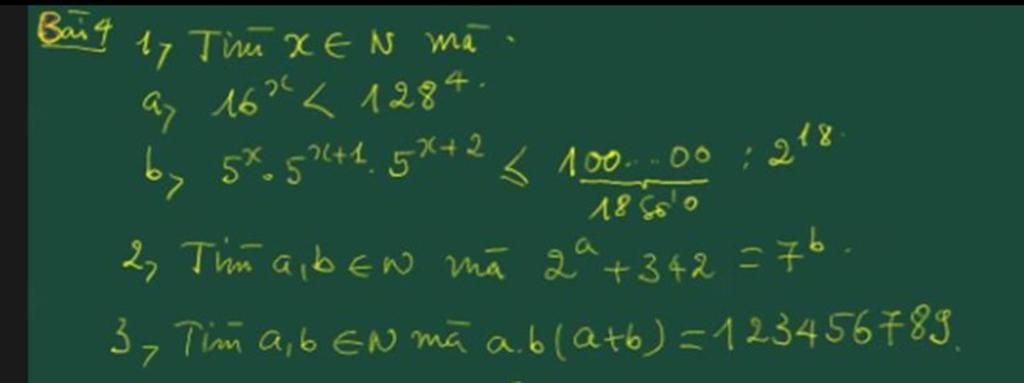 Bài 4 1, Tìm x ∈ N mà.
a, 16^x < 128^4.
b, 5^x . 5^{x+1} . 5^{x+2} ≤ 100...00 : 2^{18}.
18 số 0
2, Tìm a,b ∈ N mà 2^a + 342 = 7^b.
3, Tìm a,b ∈ N mà a.b(a+b) = 123456789.